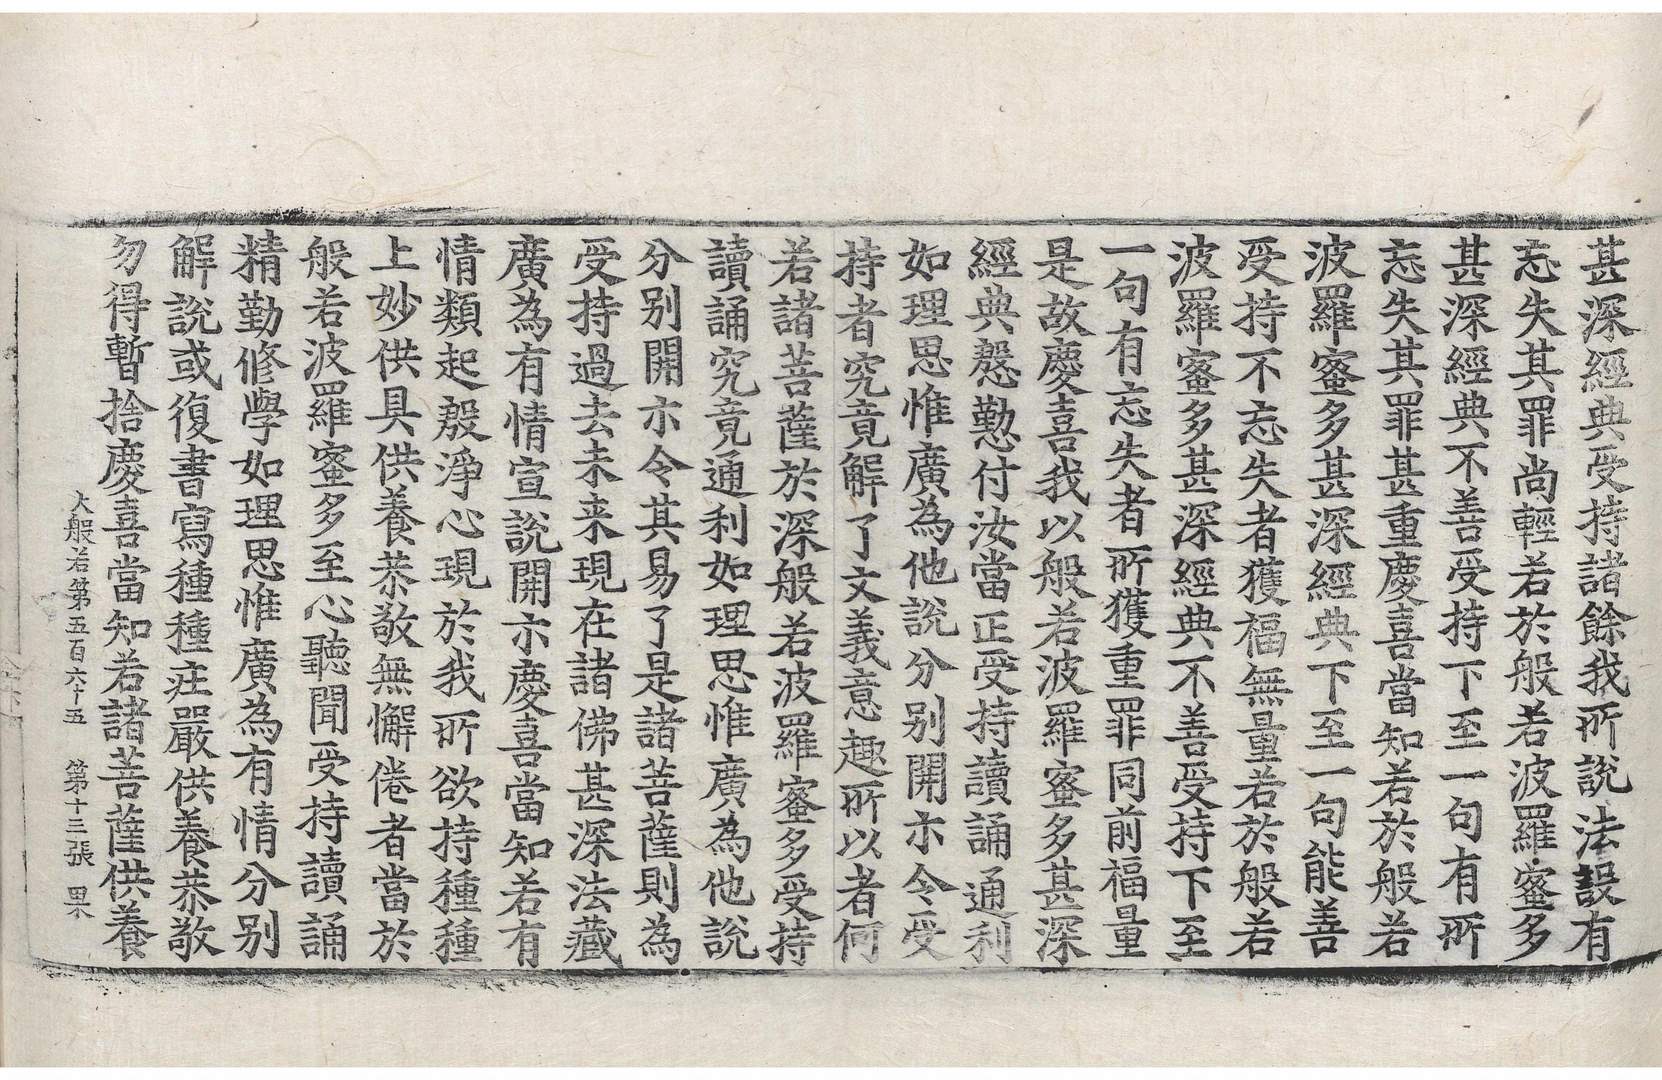 甚深經典受持諸餘我所說法設有
忘失其罪尚輕若於般若波羅蜜多
甚深經典不善受持下至一句有所
忘失其罪甚重慶喜當知若於般若
波羅蜜多甚深經典下至一句能善
受持不忘失者獲福無量若於般若
波羅蜜多甚深經典不善受持下至
一句有忘失者所獲重罪同前福量
是故慶喜我以般若波羅蜜多甚深
經典慇懃付汝當正受持讀誦通利
如理思惟廣為他說分別開示令受
持者究竟解了文義意趣所以者何
若諸菩薩於深般若波羅蜜多受持
讀誦究竟通利如理思惟廣為他說
分別開示令其易了是諸菩薩則為
受持過去未来現在諸佛甚深法藏
廣為有情宣說開示慶喜當知若有
情類起殷淨心現於我所欲持種種
上妙供具供養恭敬無懈倦者當於
般若波羅蜜多至心聽聞受持讀誦
精勤修學如理思惟廣為有情分別
解說或復書寫種種庄嚴供養恭敬
勿得暫捨慶喜當知若諸菩薩供養
大般若第五百六十五 第十三張 果